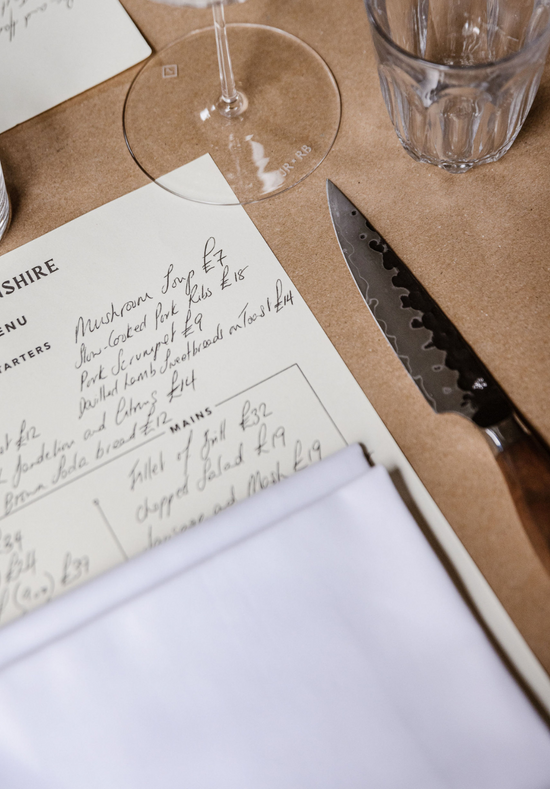 JR + RB
NSHIRE
ENU
TARTERS
Mushroom Soup £7
Slow-Cooked Pork Ribs £18
Pork Scrumpet £9
Devilled Lamb Sweetbreads on Toast £14
£12
Dandelion and Citrus £14
Brown Soda bread £12
MAINS
Fillet of Brill £32
chopped Salad £19
Sausage and Mash £19
£34
£24
£39